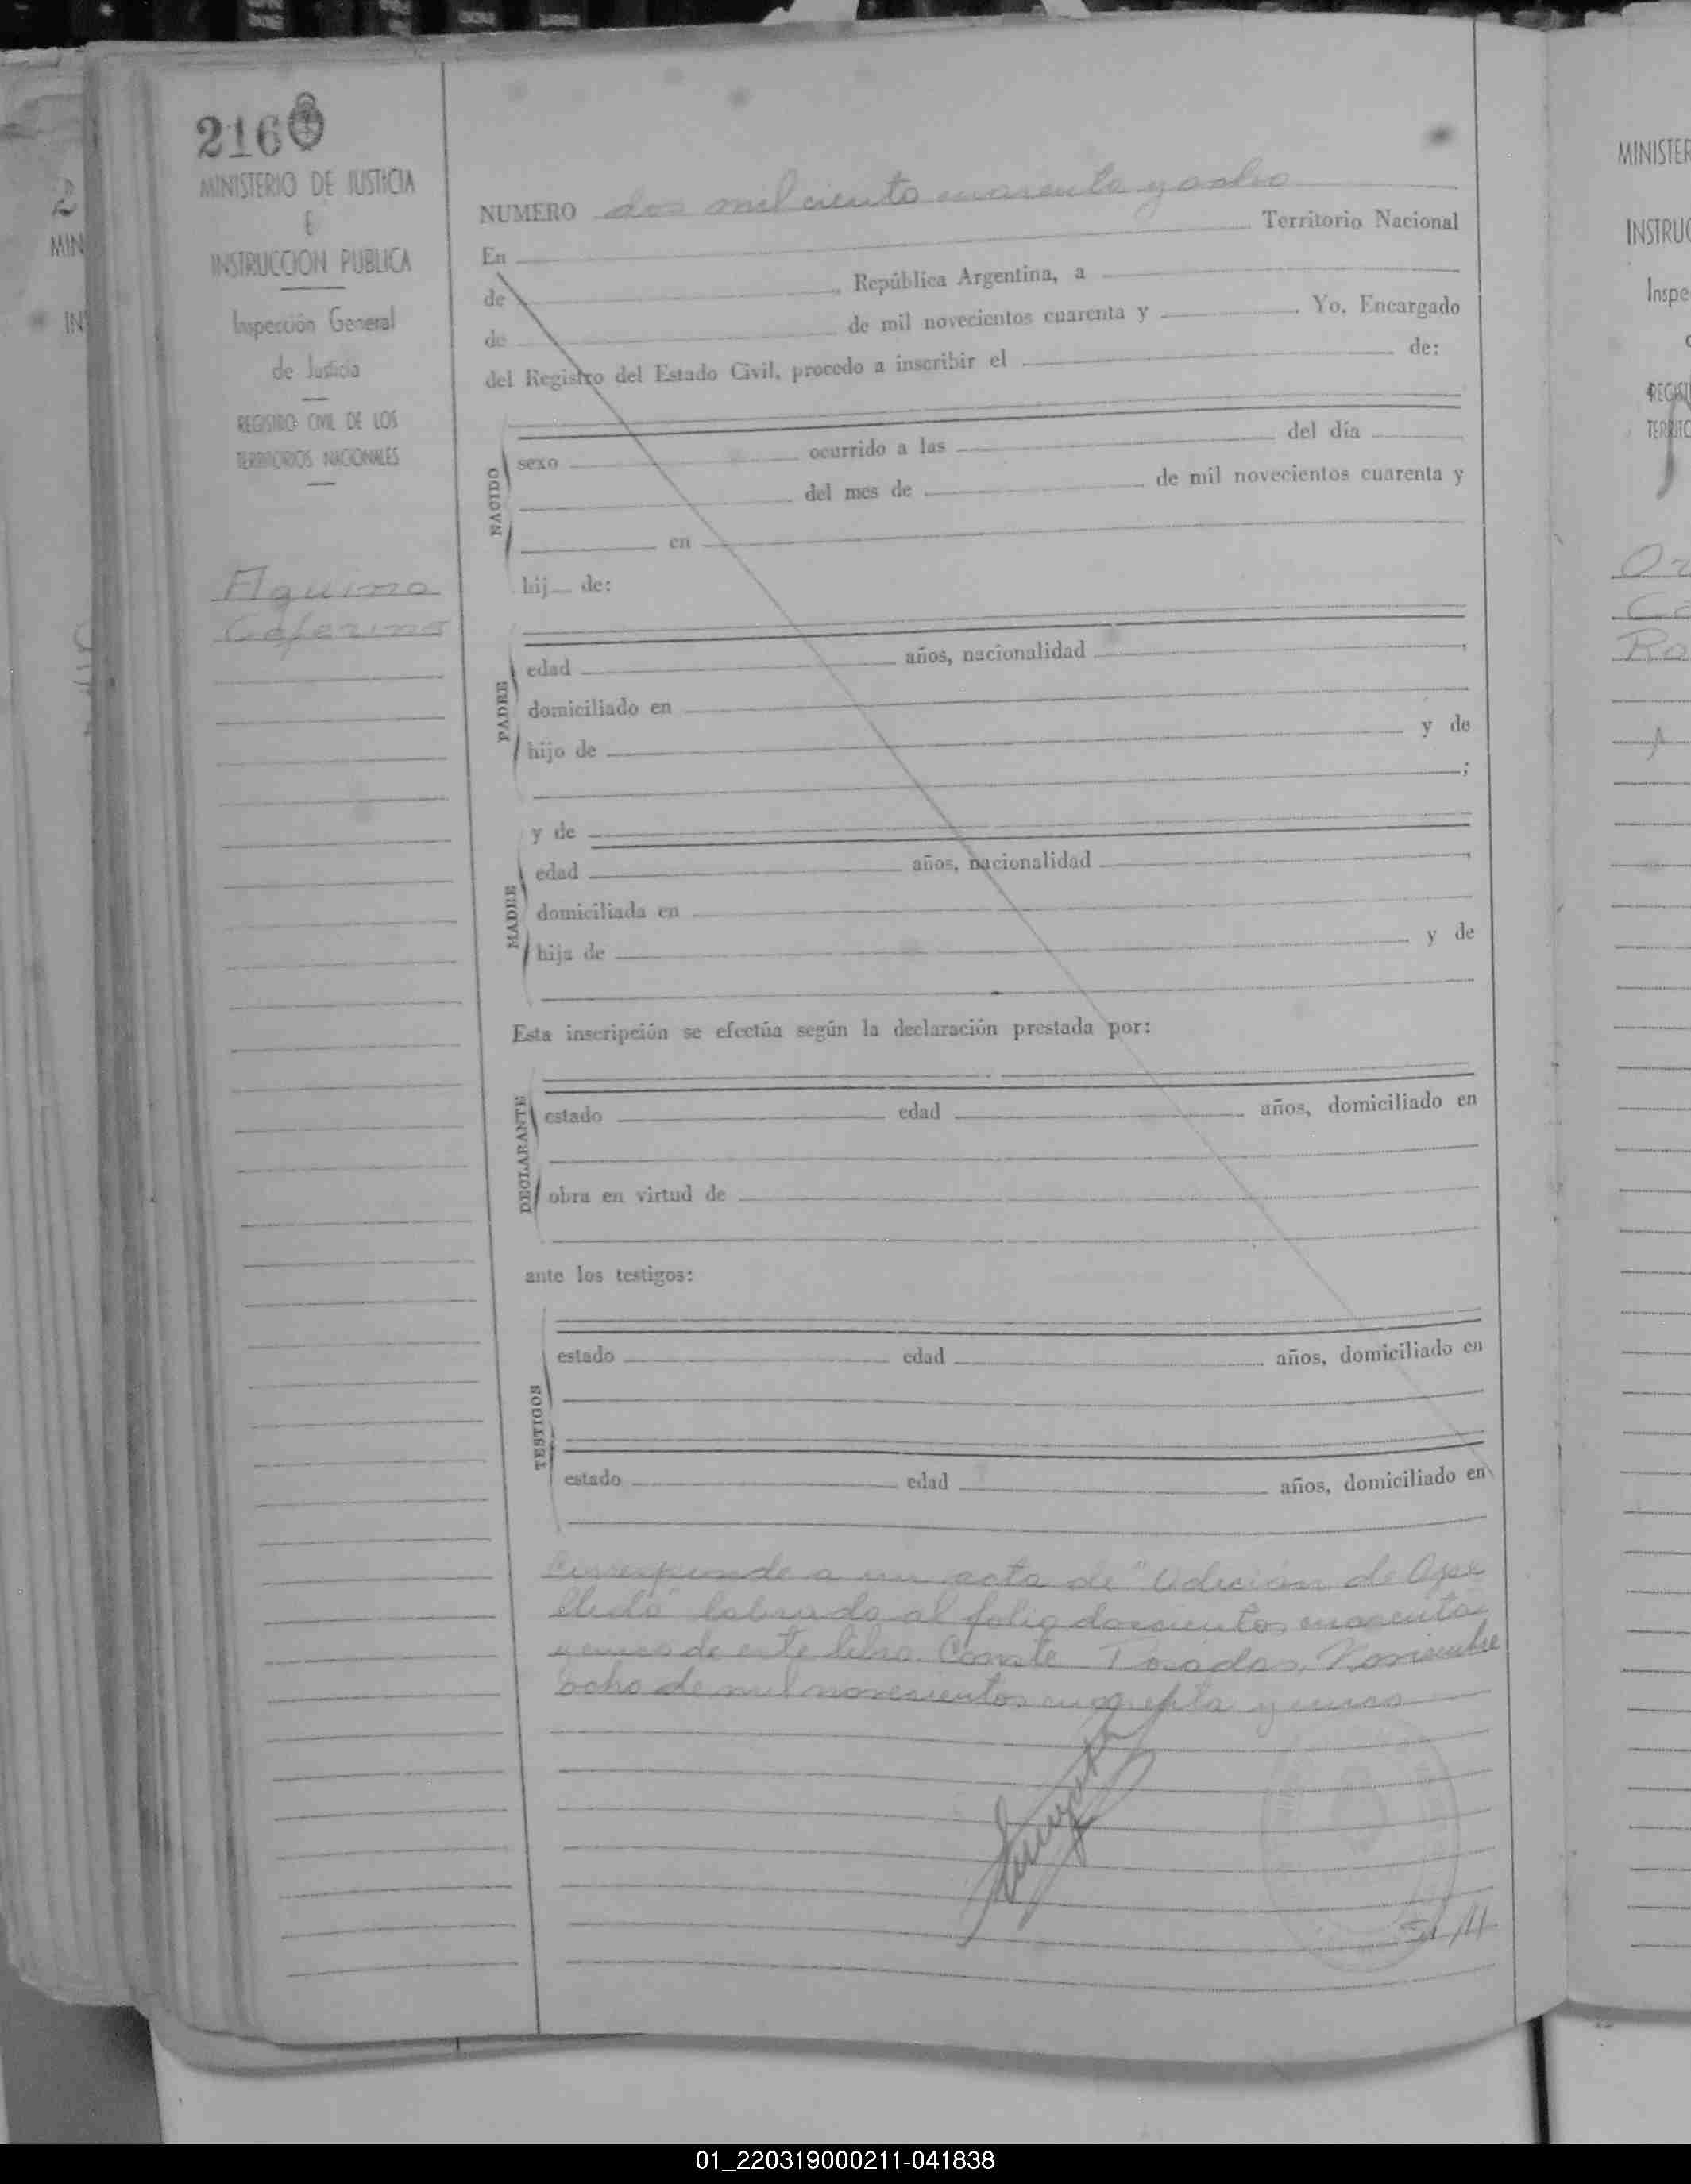 216
MINISTERIO DE JUSTICIA
E
INSTRUCCION PUBLICA
Inspección General
de Justicia
REGISTRO CIVIL DE LOS
TERRITORIOS NACIONALES
Aquino
Ceferino
NUMERO dos mil ciento cuarenta y ocho
En Territorio Nacional
de , República Argentina, a
de de mil novecientos cuarenta y . Yo, Encargado
del Registro del Estado Civil, procedo a inscribir el de:
NACIDO
sexo ocurrido a las del día
del mes de de mil novecientos cuarenta y
en
hij de:
PADRE
edad años, nacionalidad ,
domiciliado en
hijo de y de
;
y de
MADRE
edad años, nacionalidad ,
domiciliada en
hija de y de
Esta inscripción se efectúa según la declaración prestada por:
DECLARANTE
estado edad años, domiciliado en
obra en virtud de
ante los testigos:
TESTIGOS
estado edad años, domiciliado en
estado edad años, domiciliado en
Corresponde a un acta de "Adición de Ape
llido" labrada al folio doscientos cuarenta
y cinco de este libro. Conste. Posadas, Noviembre
ocho de mil novecientos cuarenta y cinco
MINISTER
INSTRUC
Inspe
REGIST
TERRITO
Ra
MIN
IN
01_220319000211-041838